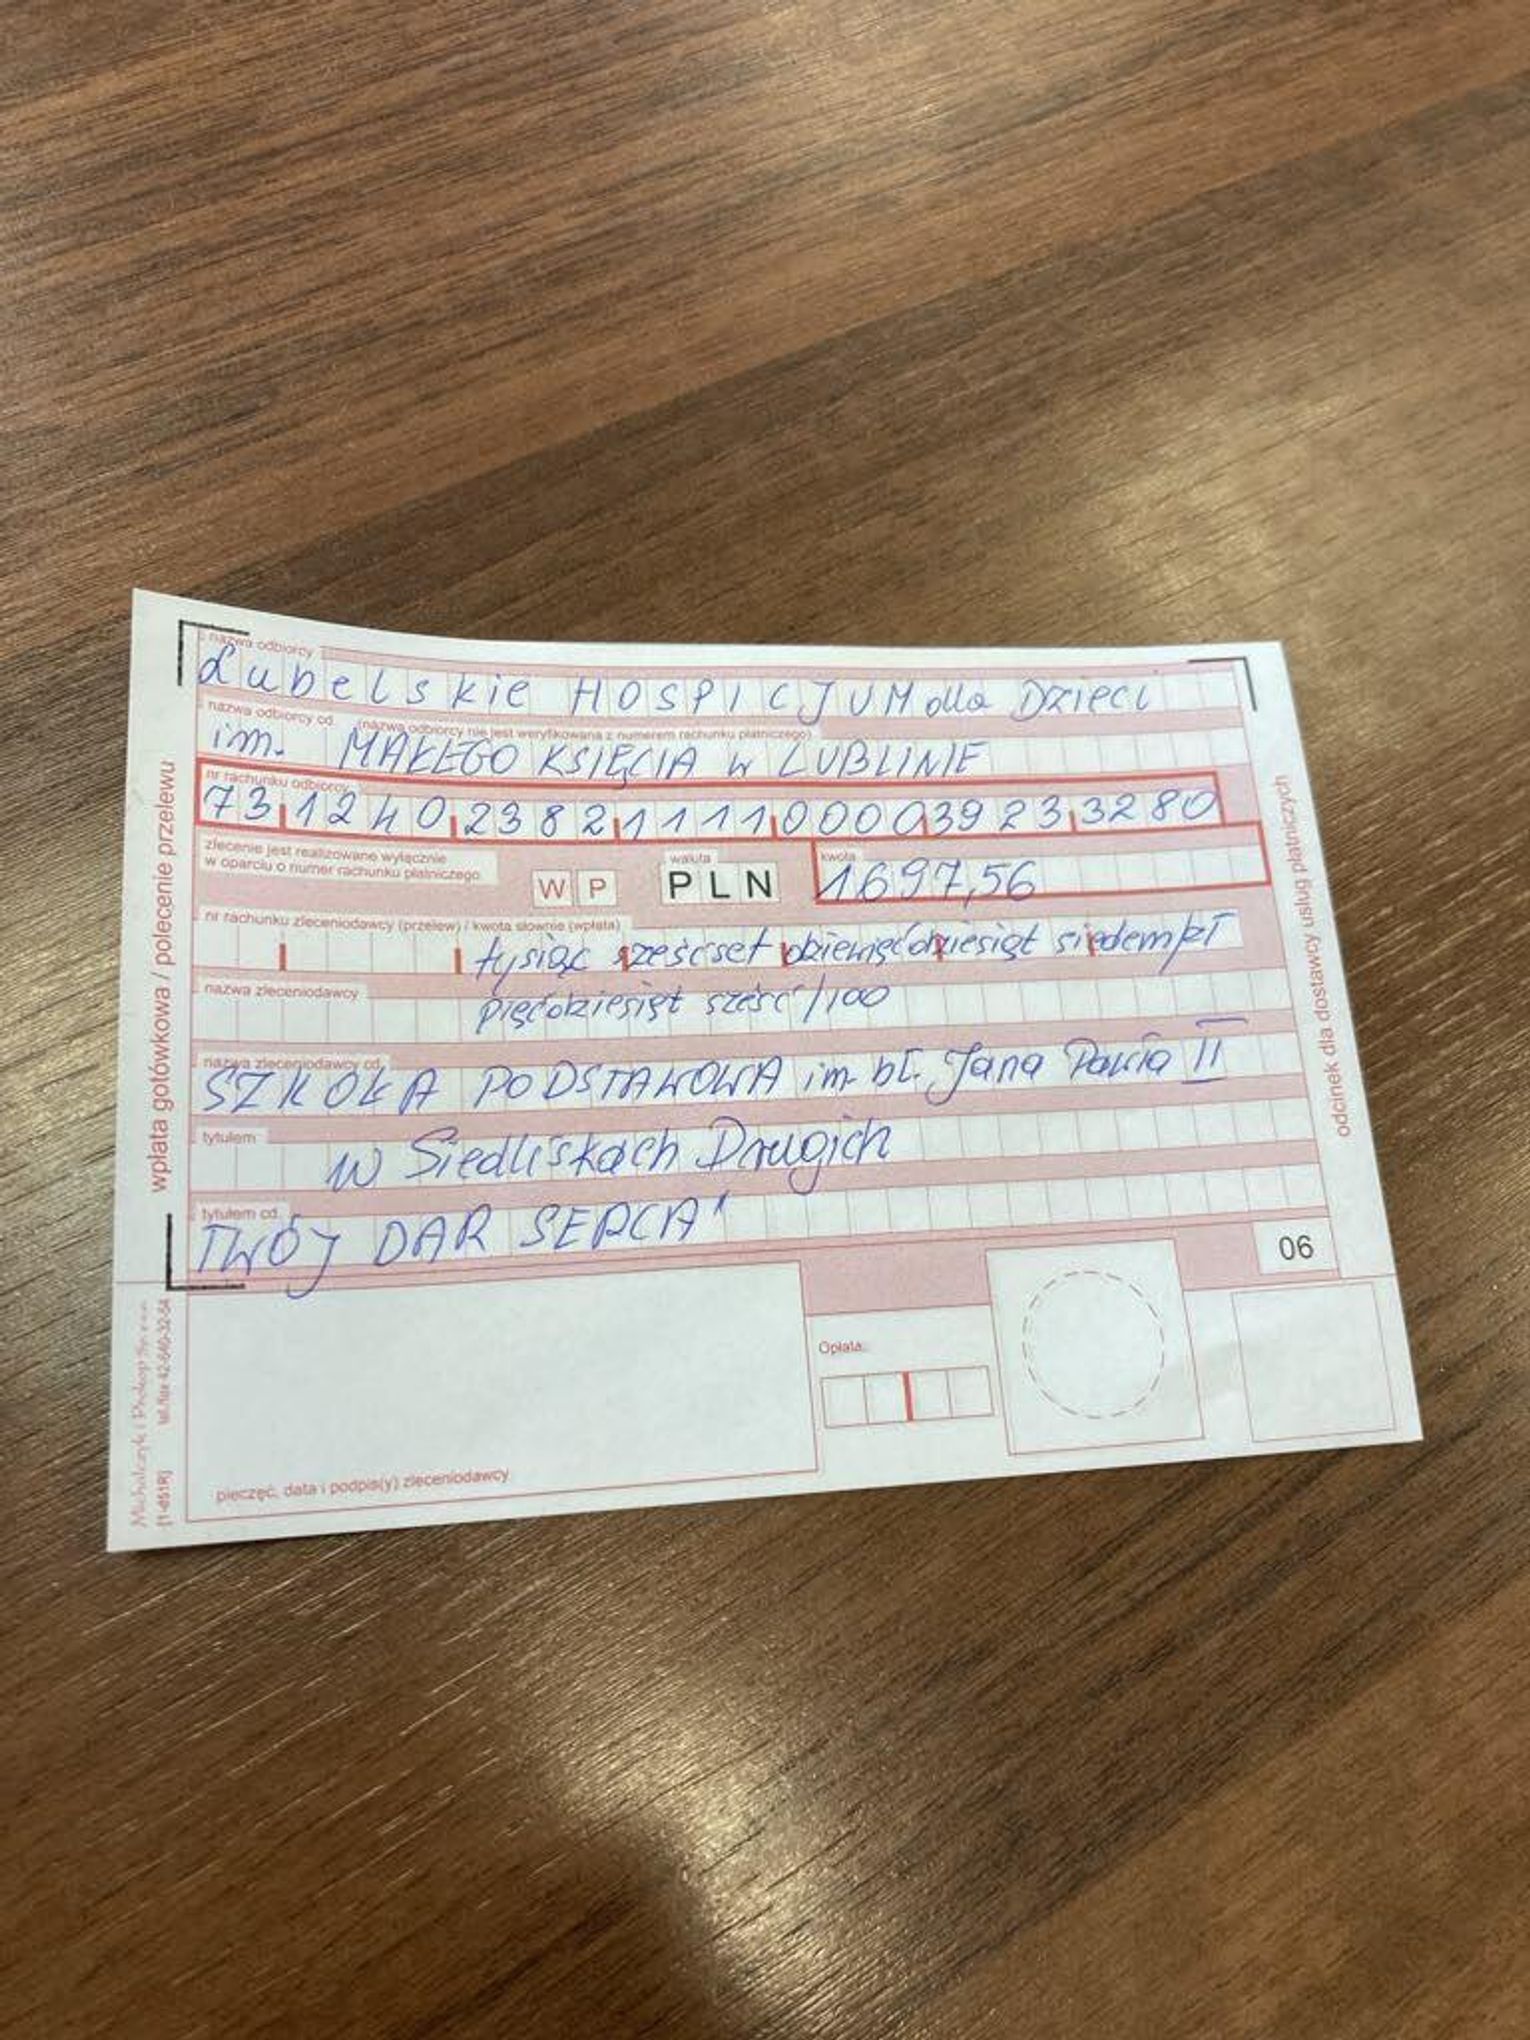 nazwa odbiorcy
Lubelskie HOSPICJUM dla Dzieci
nazwa odbiorcy cd. (nazwa odbiorcy nie jest weryfikowana z numerem rachunku płatniczego)
im. MAŁEGO KSIĘCIA w LUBLINIE
nr rachunku odbiorcy
73 1240 2382 1111 0000 3923 3280
zlecenie jest realizowane wyłącznie
w oparciu o numer rachunku płatniczego
W P
waluta
PLN
kwota
1697,56
nr rachunku zleceniodawcy (przelew) / kwota słownie (wpłata)
tysiąc sześcset dziewięćdziesiąt siedem zł
nazwa zleceniodawcy
pięćdziesiąt sześć/100
nazwa zleceniodawcy cd.
SZKOŁA PODSTAWOWA im. bł. Jana Pawła II
tytułem
w Siedliskach Drugich
tytułem cd.
TWÓJ DAR SERCA"
06
Opłata:
pieczęć, data i podpis(y) zleceniodawcy
wpłata gotówkowa / polecenie przelewu
odcinek dla dostawcy usług płatniczych
Michalczyk i Prokop Sp. z o.o.
tel./fax 42-640-32-54